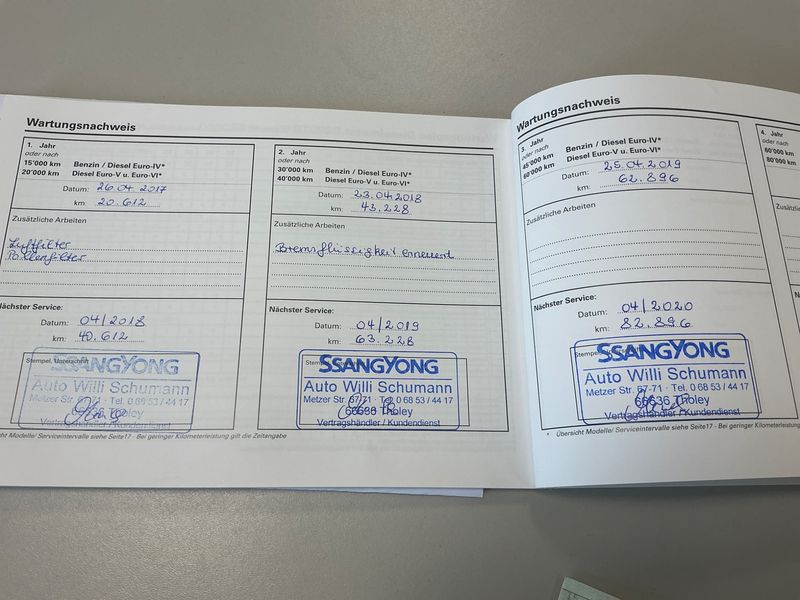 Wartungsnachweis
1. Jahr
oder nach
15'000 km Benzin / Diesel Euro-IV*
20'000 km Diesel Euro-V u. Euro-VI*
Datum: 26.04.2017
km: 20.612
Zusätzliche Arbeiten
Luftfilter
Pollenfilter
Nächster Service:
Datum: 04/2018
km: 40.612
Stempel, Unterschrift
SSANGYONG
Auto Willi Schumann
Metzer Str. 67-71 · Tel. 0 68 53 / 44 17
66636 Tholey
Vertragshändler / Kundendienst
cht Modelle/ Serviceintervalle siehe Seite17 - Bei geringer Kilometerleistung gilt die Zeitangabe
2. Jahr
oder nach
30'000 km Benzin / Diesel Euro-IV*
40'000 km Diesel Euro-V u. Euro-VI*
Datum: 23.04.2018
km: 43.228
Zusätzliche Arbeiten
Bremsflüssigkeit erneuert
Nächster Service:
Datum: 04/2019
km: 63.228
SSANGYONG
Auto Willi Schumann
Metzer Str. 67-71 · Tel. 0 68 53 / 44 17
66636 Tholey
Vertragshändler / Kundendienst
Wartungsnachweis
3. Jahr
oder nach
45'000 km Benzin / Diesel Euro-IV*
60'000 km Diesel Euro-V u. Euro-VI*
Datum: 25.04.2019
km: 62.896
Zusätzliche Arbeiten
Nächster Service:
Datum: 04/2020
km: 82.896
SSANGYONG
Auto Willi Schumann
Metzer Str. 67-71 · Tel. 0 68 53 / 44 17
66636 Tholey
Vertragshändler / Kundendienst
* Übersicht Modelle/ Serviceintervalle siehe Seite17 - Bei geringer Kilometerleistung
4. Jahr
oder nach
60'000 km
80'000 km